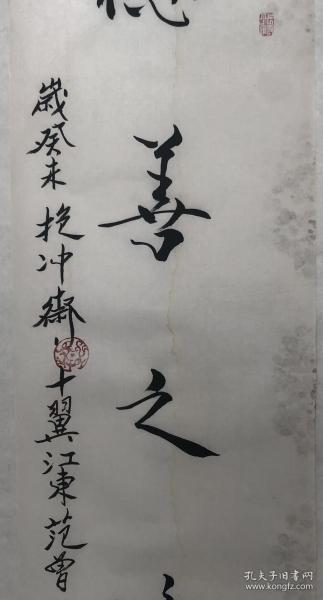 善之
歲癸未抱沖齋十翼江東范曾
孔夫子旧书网